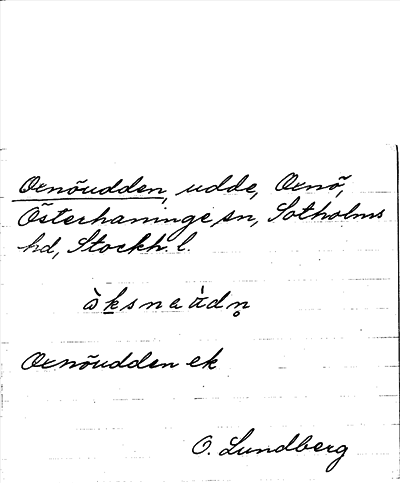 Oxnöudden, udde, Oxnö,
Österhaninge sn, Sotholms
hd, Stockh. l.
àksnaùdn̥
Oxnöudden ek
O. Lundberg